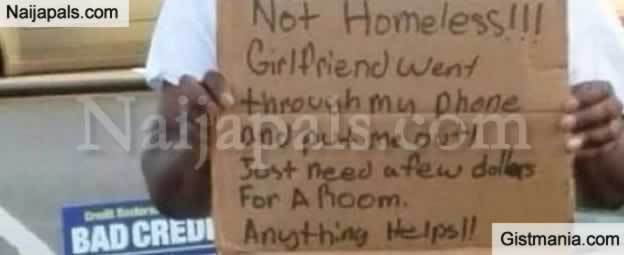 Naijapals.com
Not Homeless!!!
Girlfriend went
through my phone
And put me out!
Just need a few dollars
For A Room.
Anything Helps!!
Naijapals.com
BAD CREDI
Gistmania.com